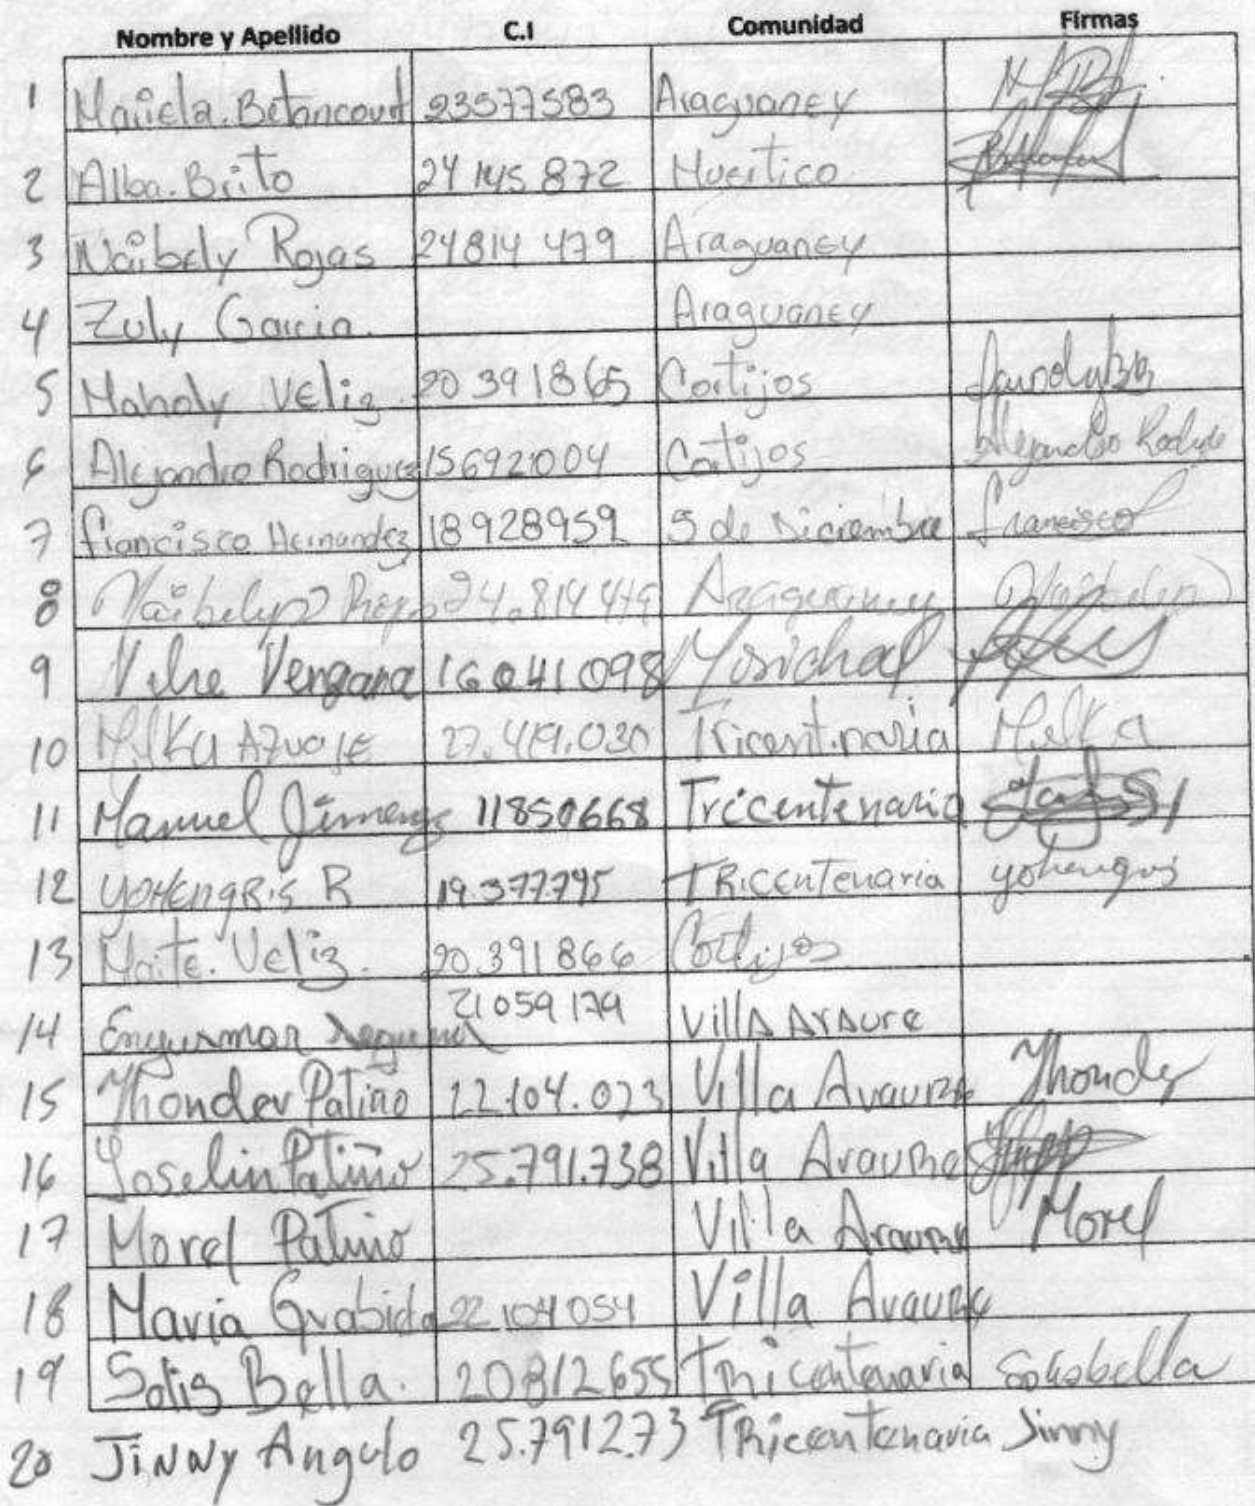 Nombre y Apellido C.I Comunidad Firmas
1 Mariela. Betancourt 23577583 Araguaney
2 Alba. Brito 24 145 872 Huertico
3 Naibely Rojas 24814 479 Araguaney
4 Zuly Garcia. Araguaney
5 Maholy Veliz 20 391865 Cortijos
6 Alejandro Rodriguez 15692004 Cortijos Alejandro
7 Francisco Hernandez 18928959 5 de Diciembre Francisco
8 Naibelys 24.814479 Araguaney
9 Vergara 16041098 Morichal
10 Milka AZUAJE 27.419.030 Tricentinaria Milka
11 Manuel Jimenez 11850668 Tricentenaria
12 YOHENGRIS R 19.377795 TRicenTenaria yohengris
13 Maite. Veliz. 20.391866 Cortijos
14 21059179 VillA ArAure
15 Jhonder Patiño 22.104.023 Villa Araure Jhonder
16 Yoselin Patiño 25.791.738 Villa Araure
17 Morel Patiño Villa Araure Morel
18 Maria Grabiela 22104054 Villa Araure
19 Solis Bella. 20812655 TRicentenaria Solisbella
20 JiNNy Angulo 25.791273 TRicentenaria Jinny